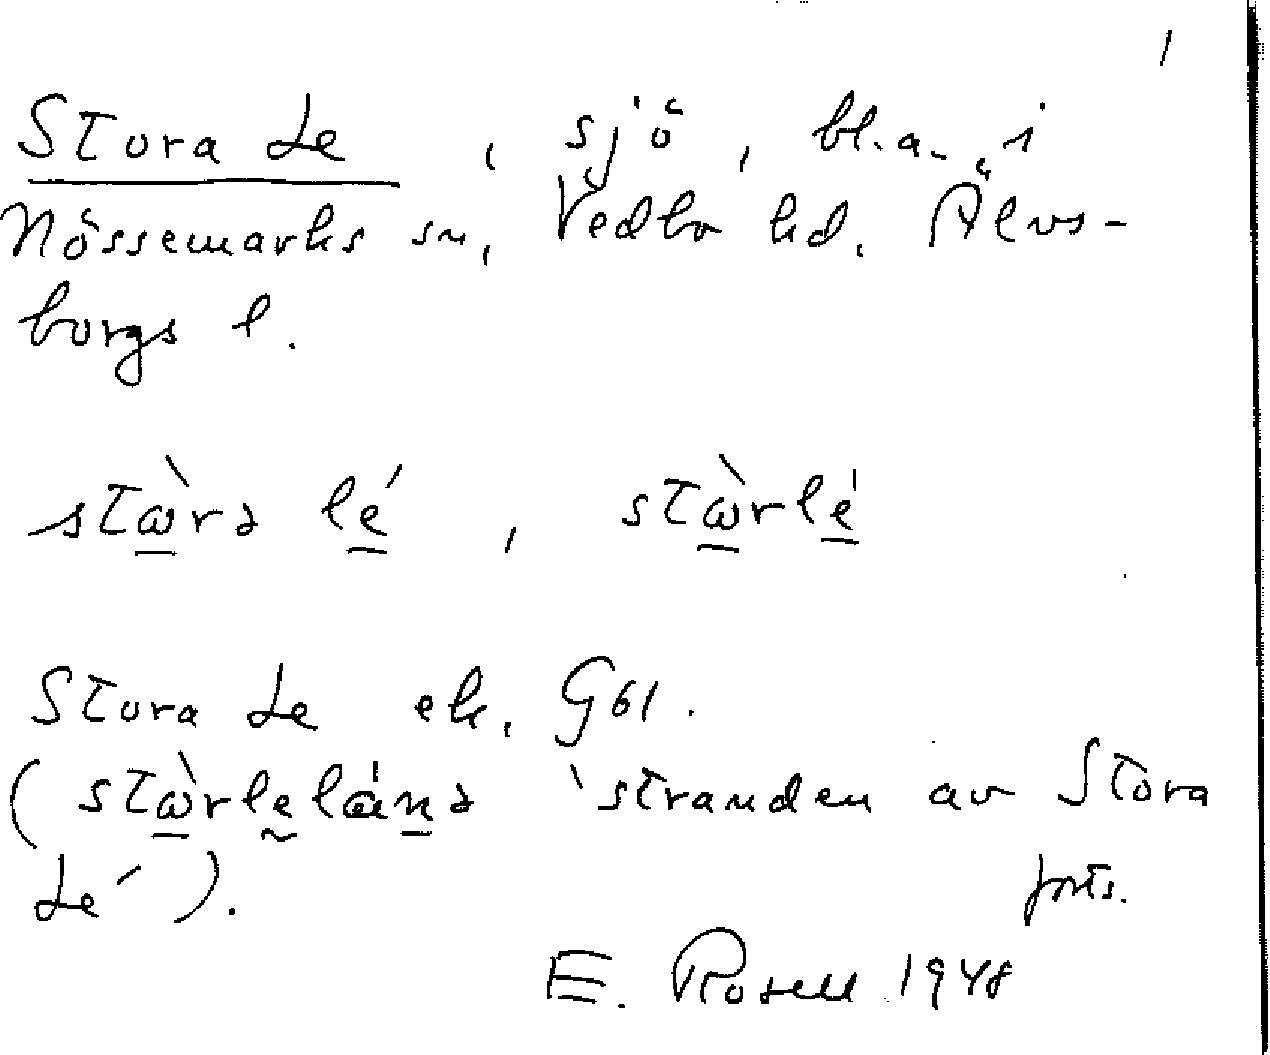 1
Stora Le, sjö, bl.a. i
Nössemarks sn, Vedbo hd. Älvs-
borgs l.
stὼrə lé, stὼrlé
Stora Le ek. G61.
(stὼrleláṉə 'stranden av Stora
Le').
forts.
E. Rosell 1948